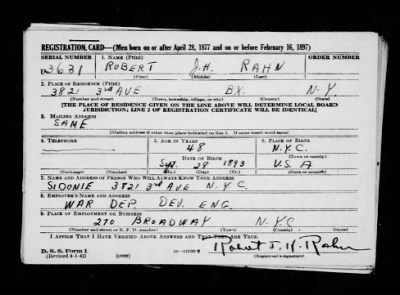 REGISTRATION CARD—(Men born on or after April 28, 1877 and on or before February 16, 1897)
SERIAL NUMBER 1. NAME (Print) ORDER NUMBER
3631 ROBERT J.H. RAHN
(First) (Middle) (Last)
2. PLACE OF RESIDENCE (Print)
3821 3rd AVE BX. N.Y.
(Number and street) (Town, township, village, or city) (County) (State)
[THE PLACE OF RESIDENCE GIVEN ON THE LINE ABOVE WILL DETERMINE LOCAL BOARD
JURISDICTION; LINE 2 OF REGISTRATION CERTIFICATE WILL BE IDENTICAL]
3. MAILING ADDRESS
SAME
[Mailing address if other than place indicated on line 2. If same insert word same]
4. TELEPHONE 5. AGE IN YEARS 6. PLACE OF BIRTH
48 N.Y.C.
DATE OF BIRTH (Town or county)
28 1893 U.S.A
(Exchange) (Number) (Mo.) (Day) (Yr.) (State or country)
7. NAME AND ADDRESS OF PERSON WHO WILL ALWAYS KNOW YOUR ADDRESS
SIDONIE 3821 3rd AVE N.Y.C.
8. EMPLOYER'S NAME AND ADDRESS
WAR DEP. DEV. ENG.
9. PLACE OF EMPLOYMENT OR BUSINESS
270 BROADWAY N.Y.C
(Number and street or R. F. D. number) (Town) (County) (State)
I AFFIRM THAT I HAVE VERIFIED ABOVE ANSWERS AND THAT THEY ARE TRUE.
Robert J. H. Rahn
D. S. S. Form 1
(Revised 4-1-42) (over) (Registrant's signature)